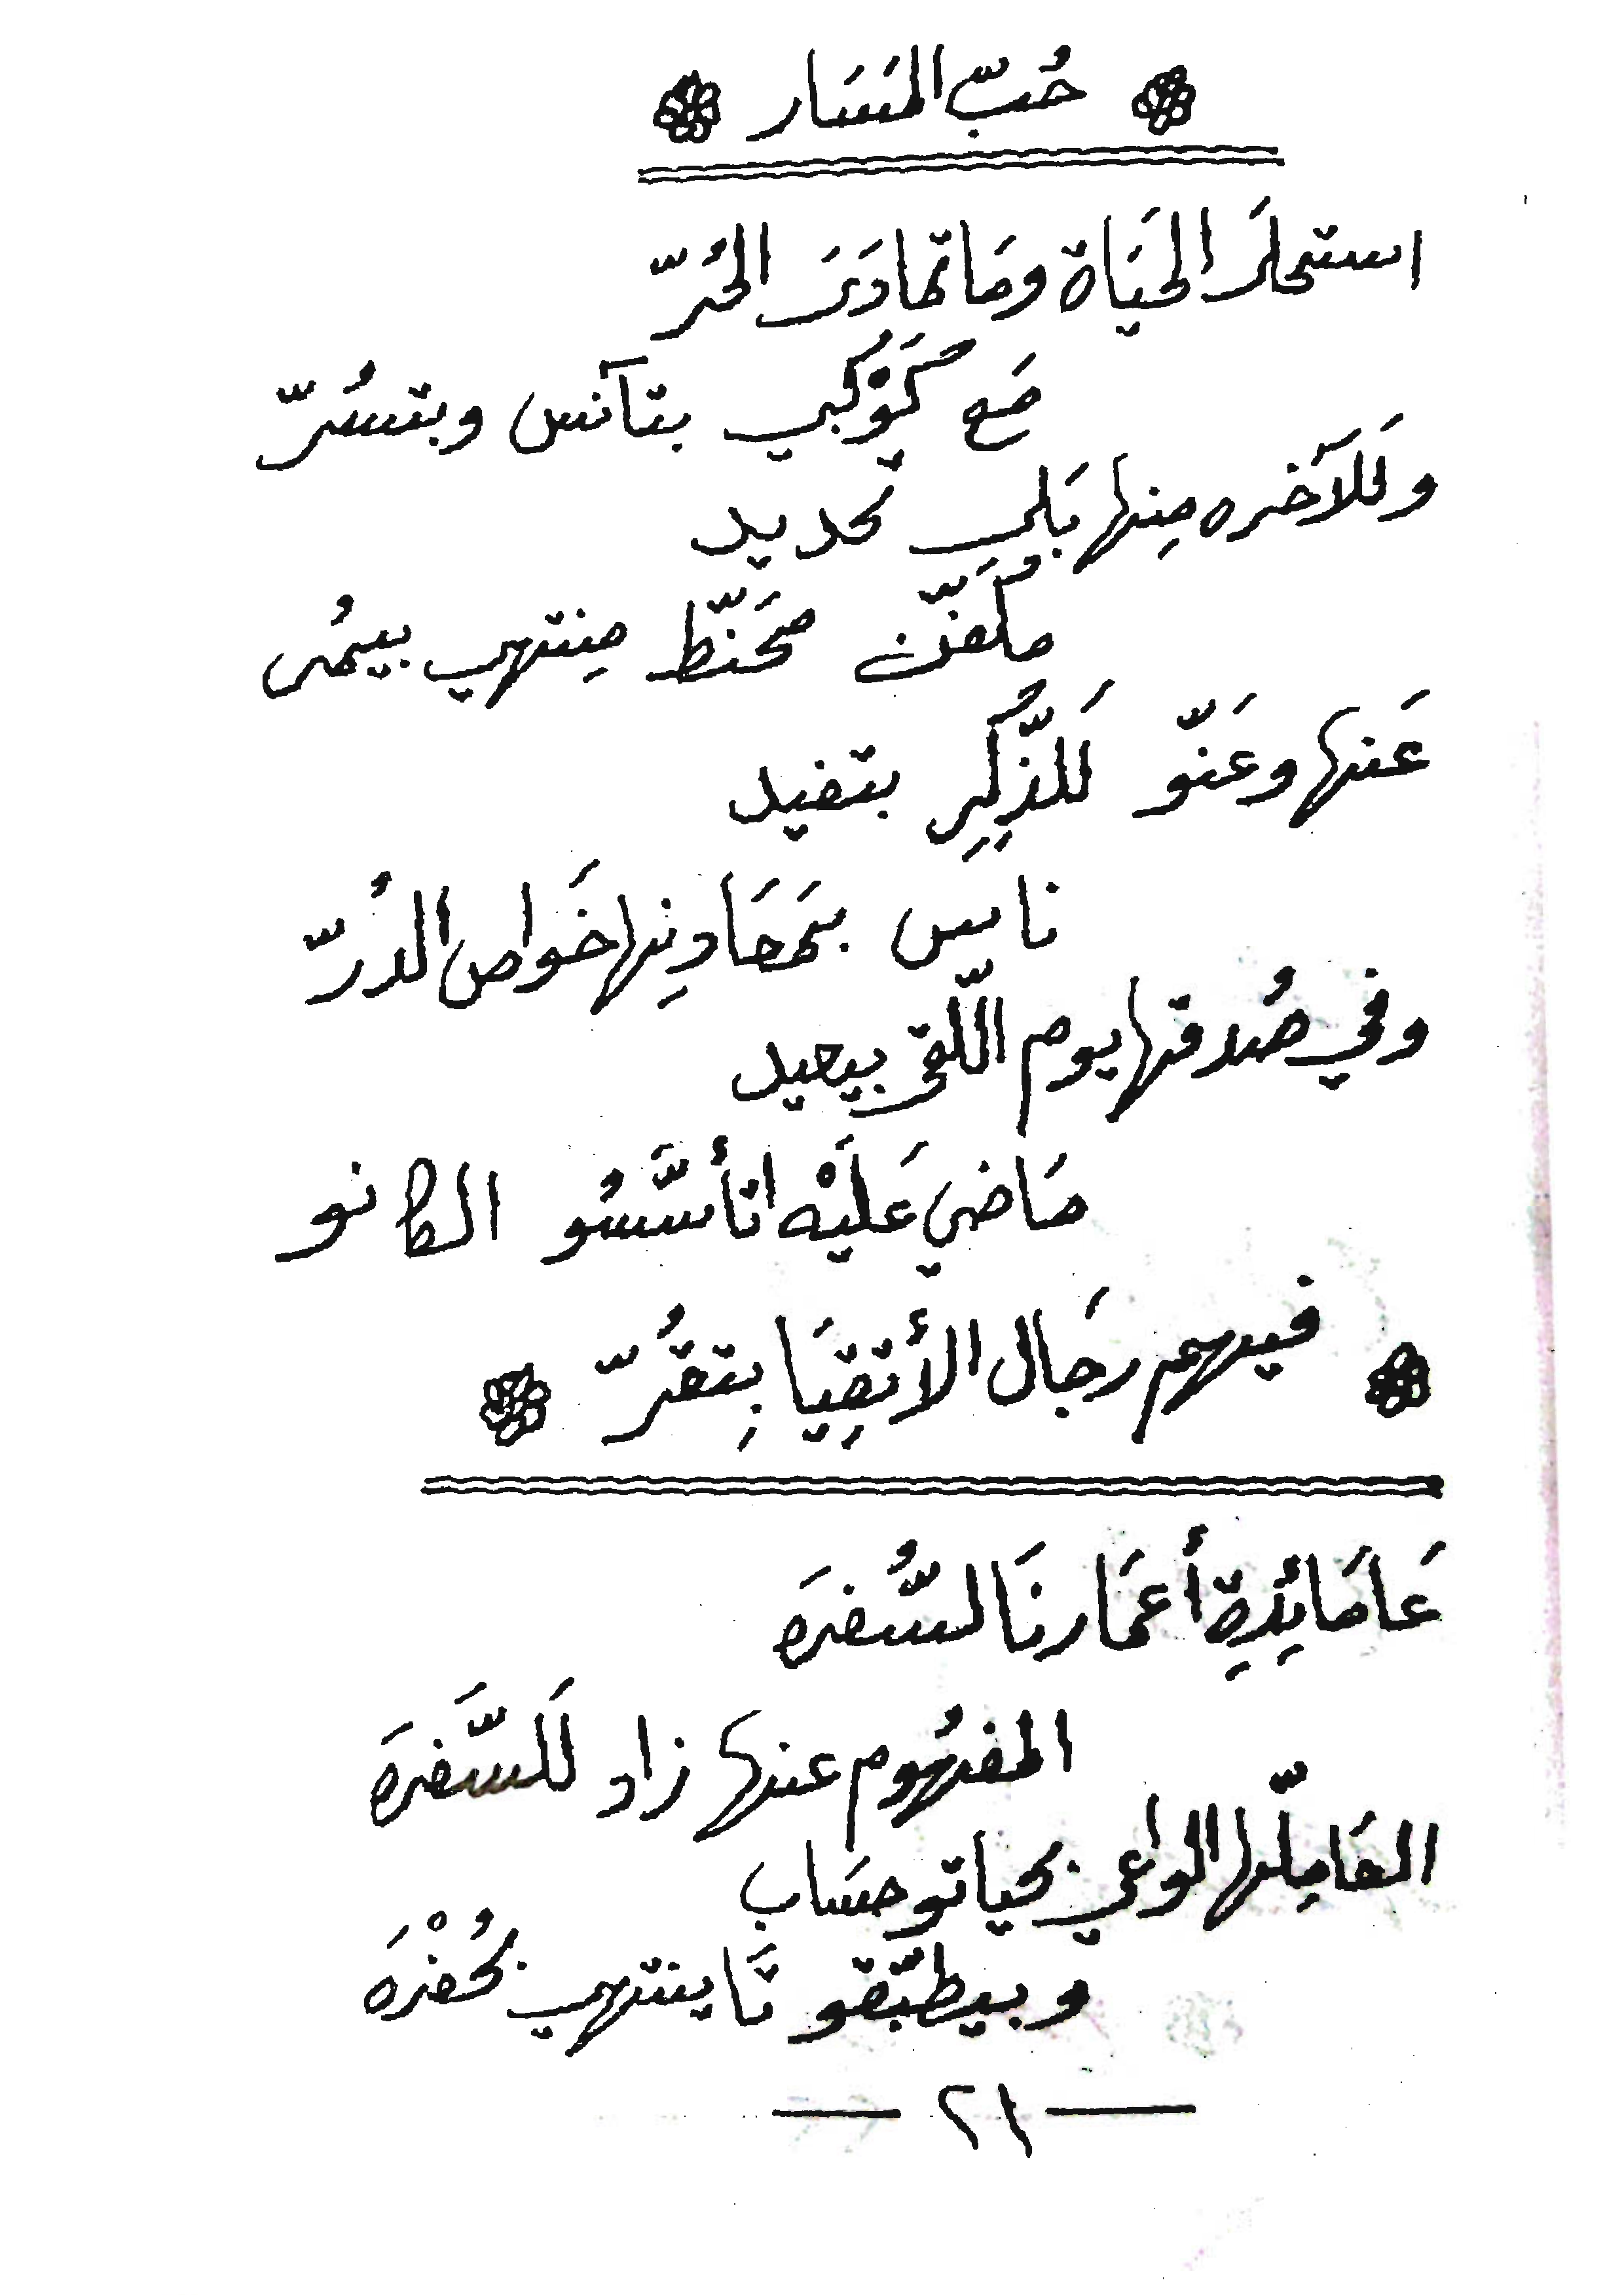 حُبّ المَسَار
استحلَى الحَيَاة ومَا تمادَىَ الحُرّ
مَع كَوْكبي بتآنس وبتسُرّ
وللآخره مِنها بَلي تحديد
مكَفّن محَنّط مِنتهي بيمُر
عَنها وعَنّو لَلذِّكِر بتفيد
ناس بمَعَادِنها خَواص الدُرّ
وفي صُدقها يوم اللّقى بيعيد
مَاضي عَلَيْه اتأسَّسُو الكانو
فيهم رجَال الأتقِيَا بِتقُرّ
عَامَائِدِة أعمَارنَا لسُّفرَه
المفهُوم عنها زاد لَلسَّفرَه
العَامِلّها الواعي بحياتو حسَاب
وبيطبّقو تَا ينتهي بحُفْرَه
— ٢١ —